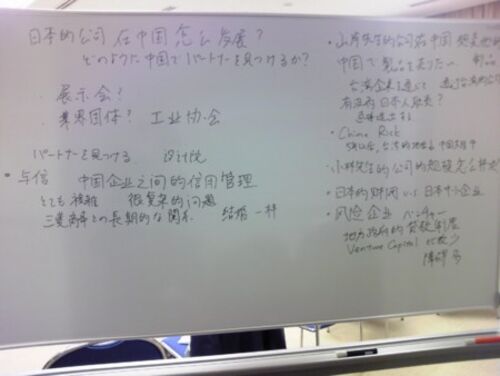 日本的公司在中国怎么发展?
どのように中国でパートナーを見つけるか?
・展示会?
・業界团体? 工业协会
パートナーを見つける 设计院
・与信 中国企业之间的信用管理
とても複雑 很复杂的问题
三菱商事との長期的な関系 结婚一样
・山岸先生的公司在中国
中国で製品を売りたい
台湾企業を通じて
有没有日本人职员?
・China Risk
・小林先生的公司的规模怎么样
・日本的财阀 v.s 日本中小企业
・风险企业 ベンチャー
地方政府的贷款制度
Venture Capital 比较少